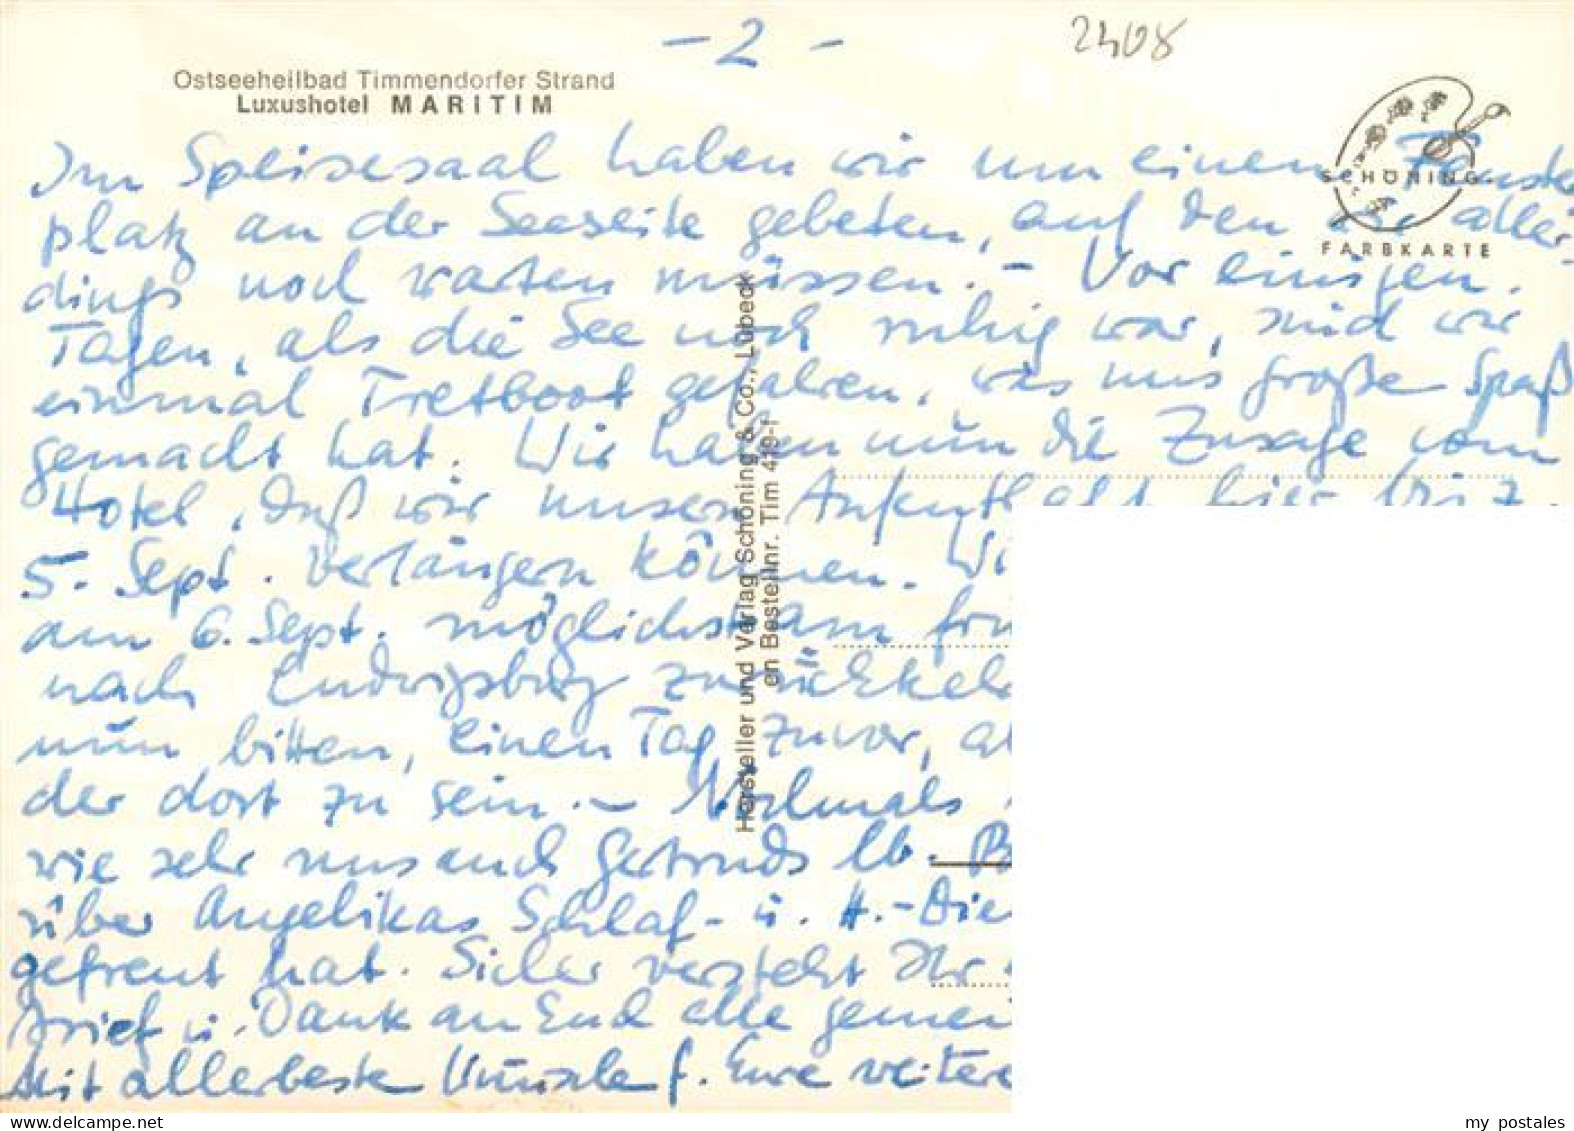 - 2 -
2408
Ostseeheilbad Timmendorfer Strand
Luxushotel MARITIM
SCHÖNING
FARBKARTE
Im Speisesaal haben wir um einen Fenster
platz an der Seeseite gebeten, auf den aller-
dings noch warten müssen. - Vor einigen
Tagen, als die See noch ruhig war, sind wir
einmal Tretboot gefahren, was uns große Spaß
gemacht hat. Wir haben nun die Zusage vom
Hotel, daß wir unseren Aufenthalt hier bis z.
5. Sept. verlängern können. Wi
am 6. Sept. möglichst am frü
nach Ludwigsburg zurückkeh
nun bitten, einen Tag zuvor, a
der dort zu sein. - Nochmals
wie sehr uns auch Gertruds lb. B
über Angelikas Schlaf- u. H.-Die
gefreut hat. Sicher versteht Ihr
Brief u. Dank an End alle gemei
Mit allerbeste Wünsche f. Eure weitere
Hersteller und Verlag Schöning & Co., Lübeck
en Bestellnr. Tim 419-f
delcampe.net
my postales